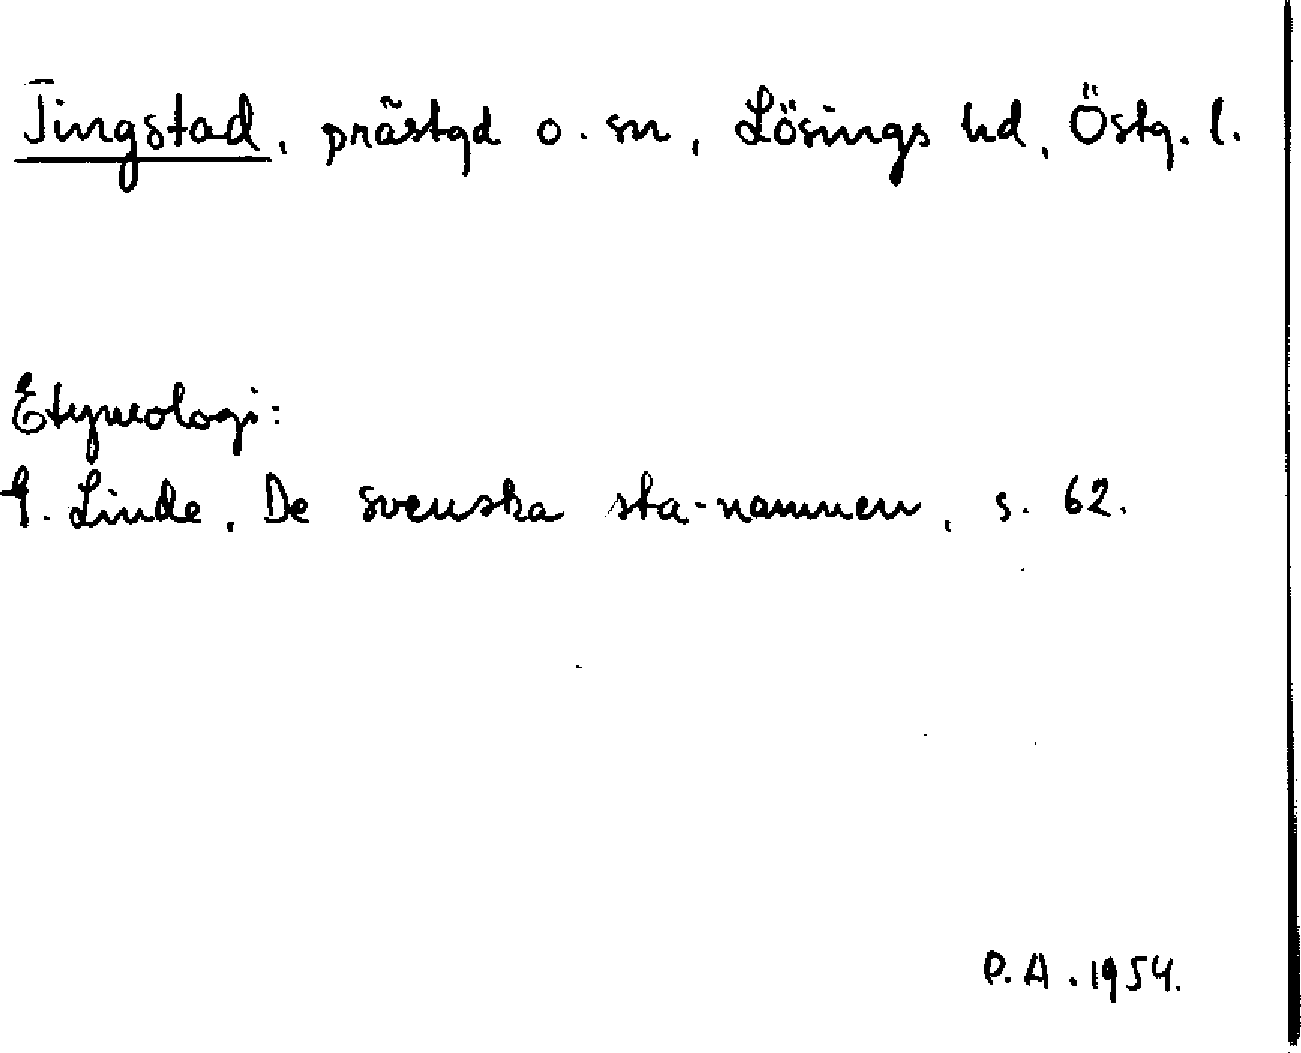 Tingstad, prästgd o. sn, Lösings hd, Östg. l.
Etymologi:
G. Linde, De svenska sta-namnen, s. 62.
O.A. 1954.